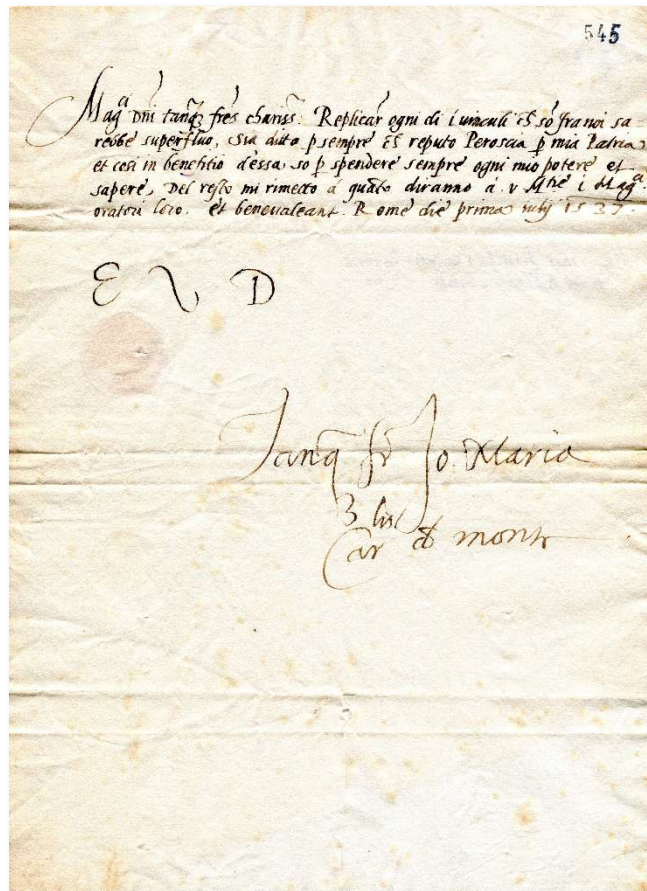 545
Mag.ci Dni tanq̃ȝ frēs chariss: Replicar ogni di i uinculi ch̃ sõ fra noi sa
rebbe superfluo, Sia ditto p̱ sempre ch̃ reputo Peroscia p̱ mia Patria
et cosi in benefitio d'essa, so p̱ spendere sempre ogni mio potere et
sapere, Del resto mi rimetto á quãto diranno á. v. Mtie i Mag.ci
oratori loro. et beneualeant. Rome die prima iulij 1537.
E V D
Tanq̃ fr̃ Jo. Maria
Car mont